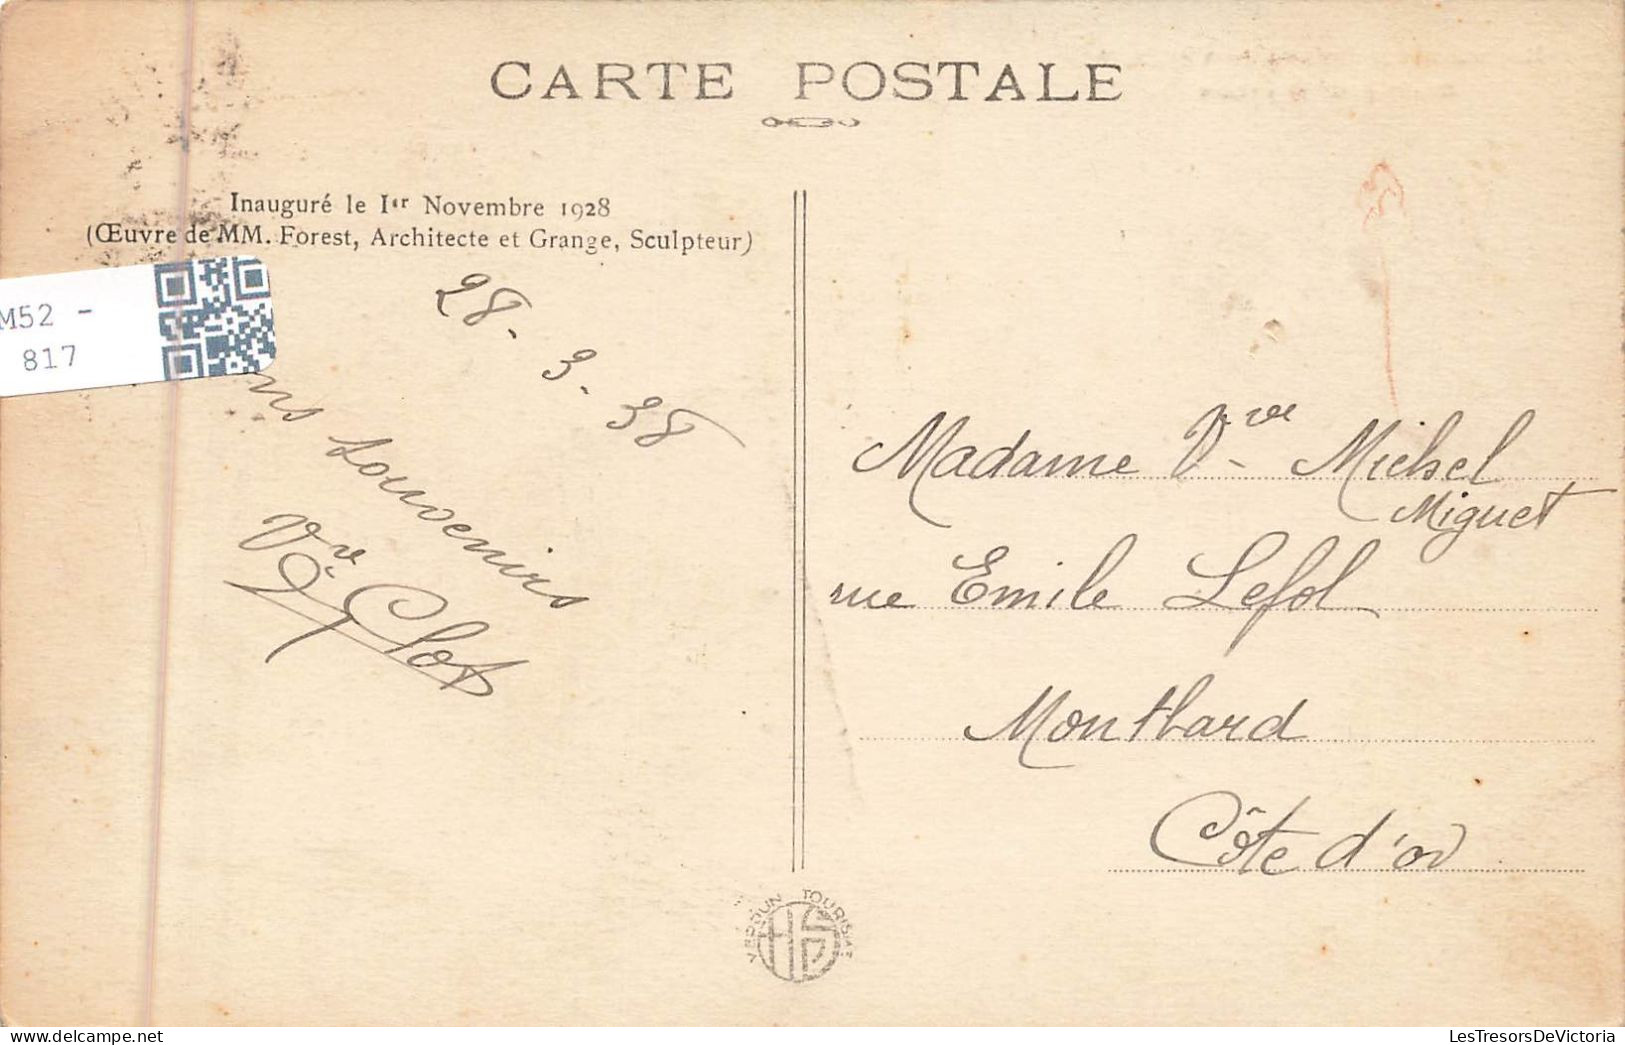 CARTE POSTALE
Inauguré le 1er Novembre 1928
(Œuvre de MM. Forest, Architecte et Grange, Sculpteur)
M52 -
817
28. 3. 38
souvenirs
Vve Clot
Madame Vve Michel
Miguet
rue Emile Lefol
Montbard
Côte d'or
VERDUN TOURISME
HS
LesTresorsDeVictoria